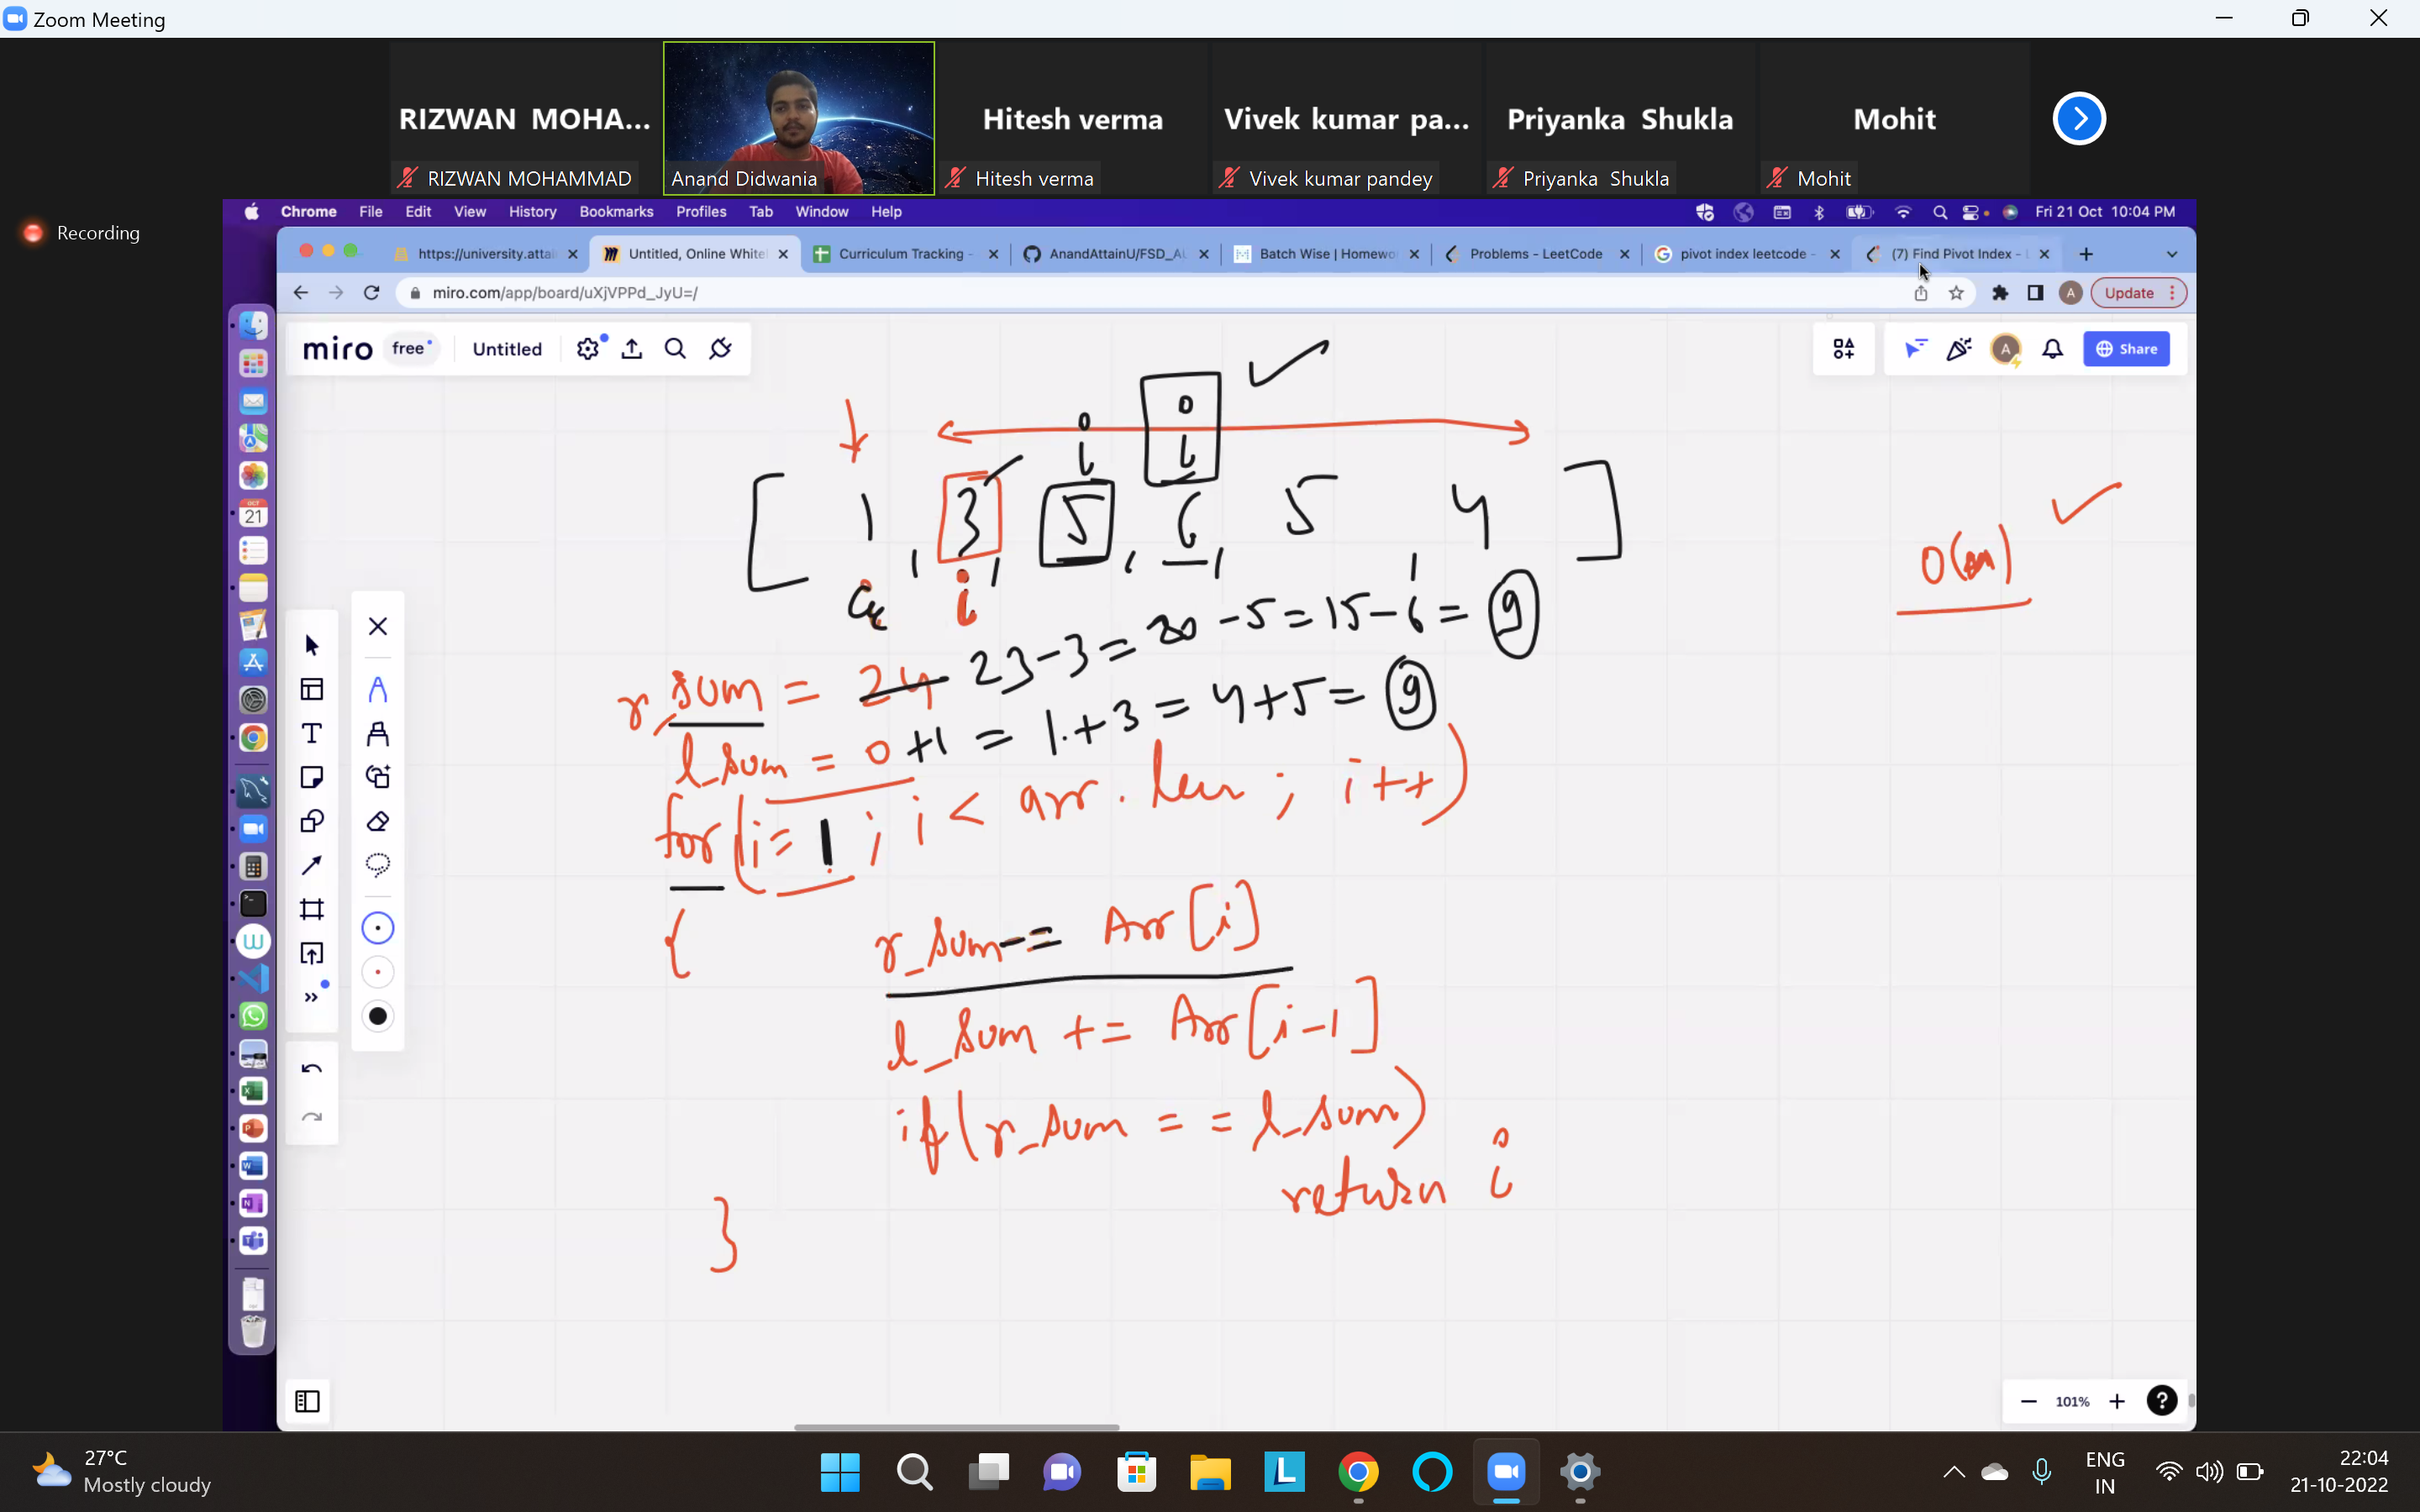 Zoom Meeting
RIZWAN MOHA... Hitesh verma Vivek kumar pa... Priyanka Shukla Mohit
RIZWAN MOHAMMAD Anand Didwania Hitesh verma Vivek kumar pandey Priyanka Shukla Mohit
Recording
Chrome File Edit View History Bookmarks Profiles Tab Window Help Fri 21 Oct 10:04 PM
https://university.attai Untitled, Online White Curriculum Tracking - AnandAttainU/FSD_AU Batch Wise | Homewo Problems - LeetCode pivot index leetcode - (7) Find Pivot Index - L
miro.com/app/board/uXjVPPd_JyU=/ A Update
miro free Untitled A Share
OCT
21
[ 1 , 3 , 5 , 6 , 5 , 4 ]
i
O(n)
r_sum = 24 23-3 = 20 -5 = 15-6 = 9
l_sum = 0 +1 = 1+3 = 4+5 = 9
for (i = 1 ; i < arr.len ; i++)
{
r_sum -= Arr[i]
l_sum += Arr[i-1]
if(r_sum == l_sum)
return i
}
101%
27°C
Mostly cloudy
ENG
IN
22:04
21-10-2022